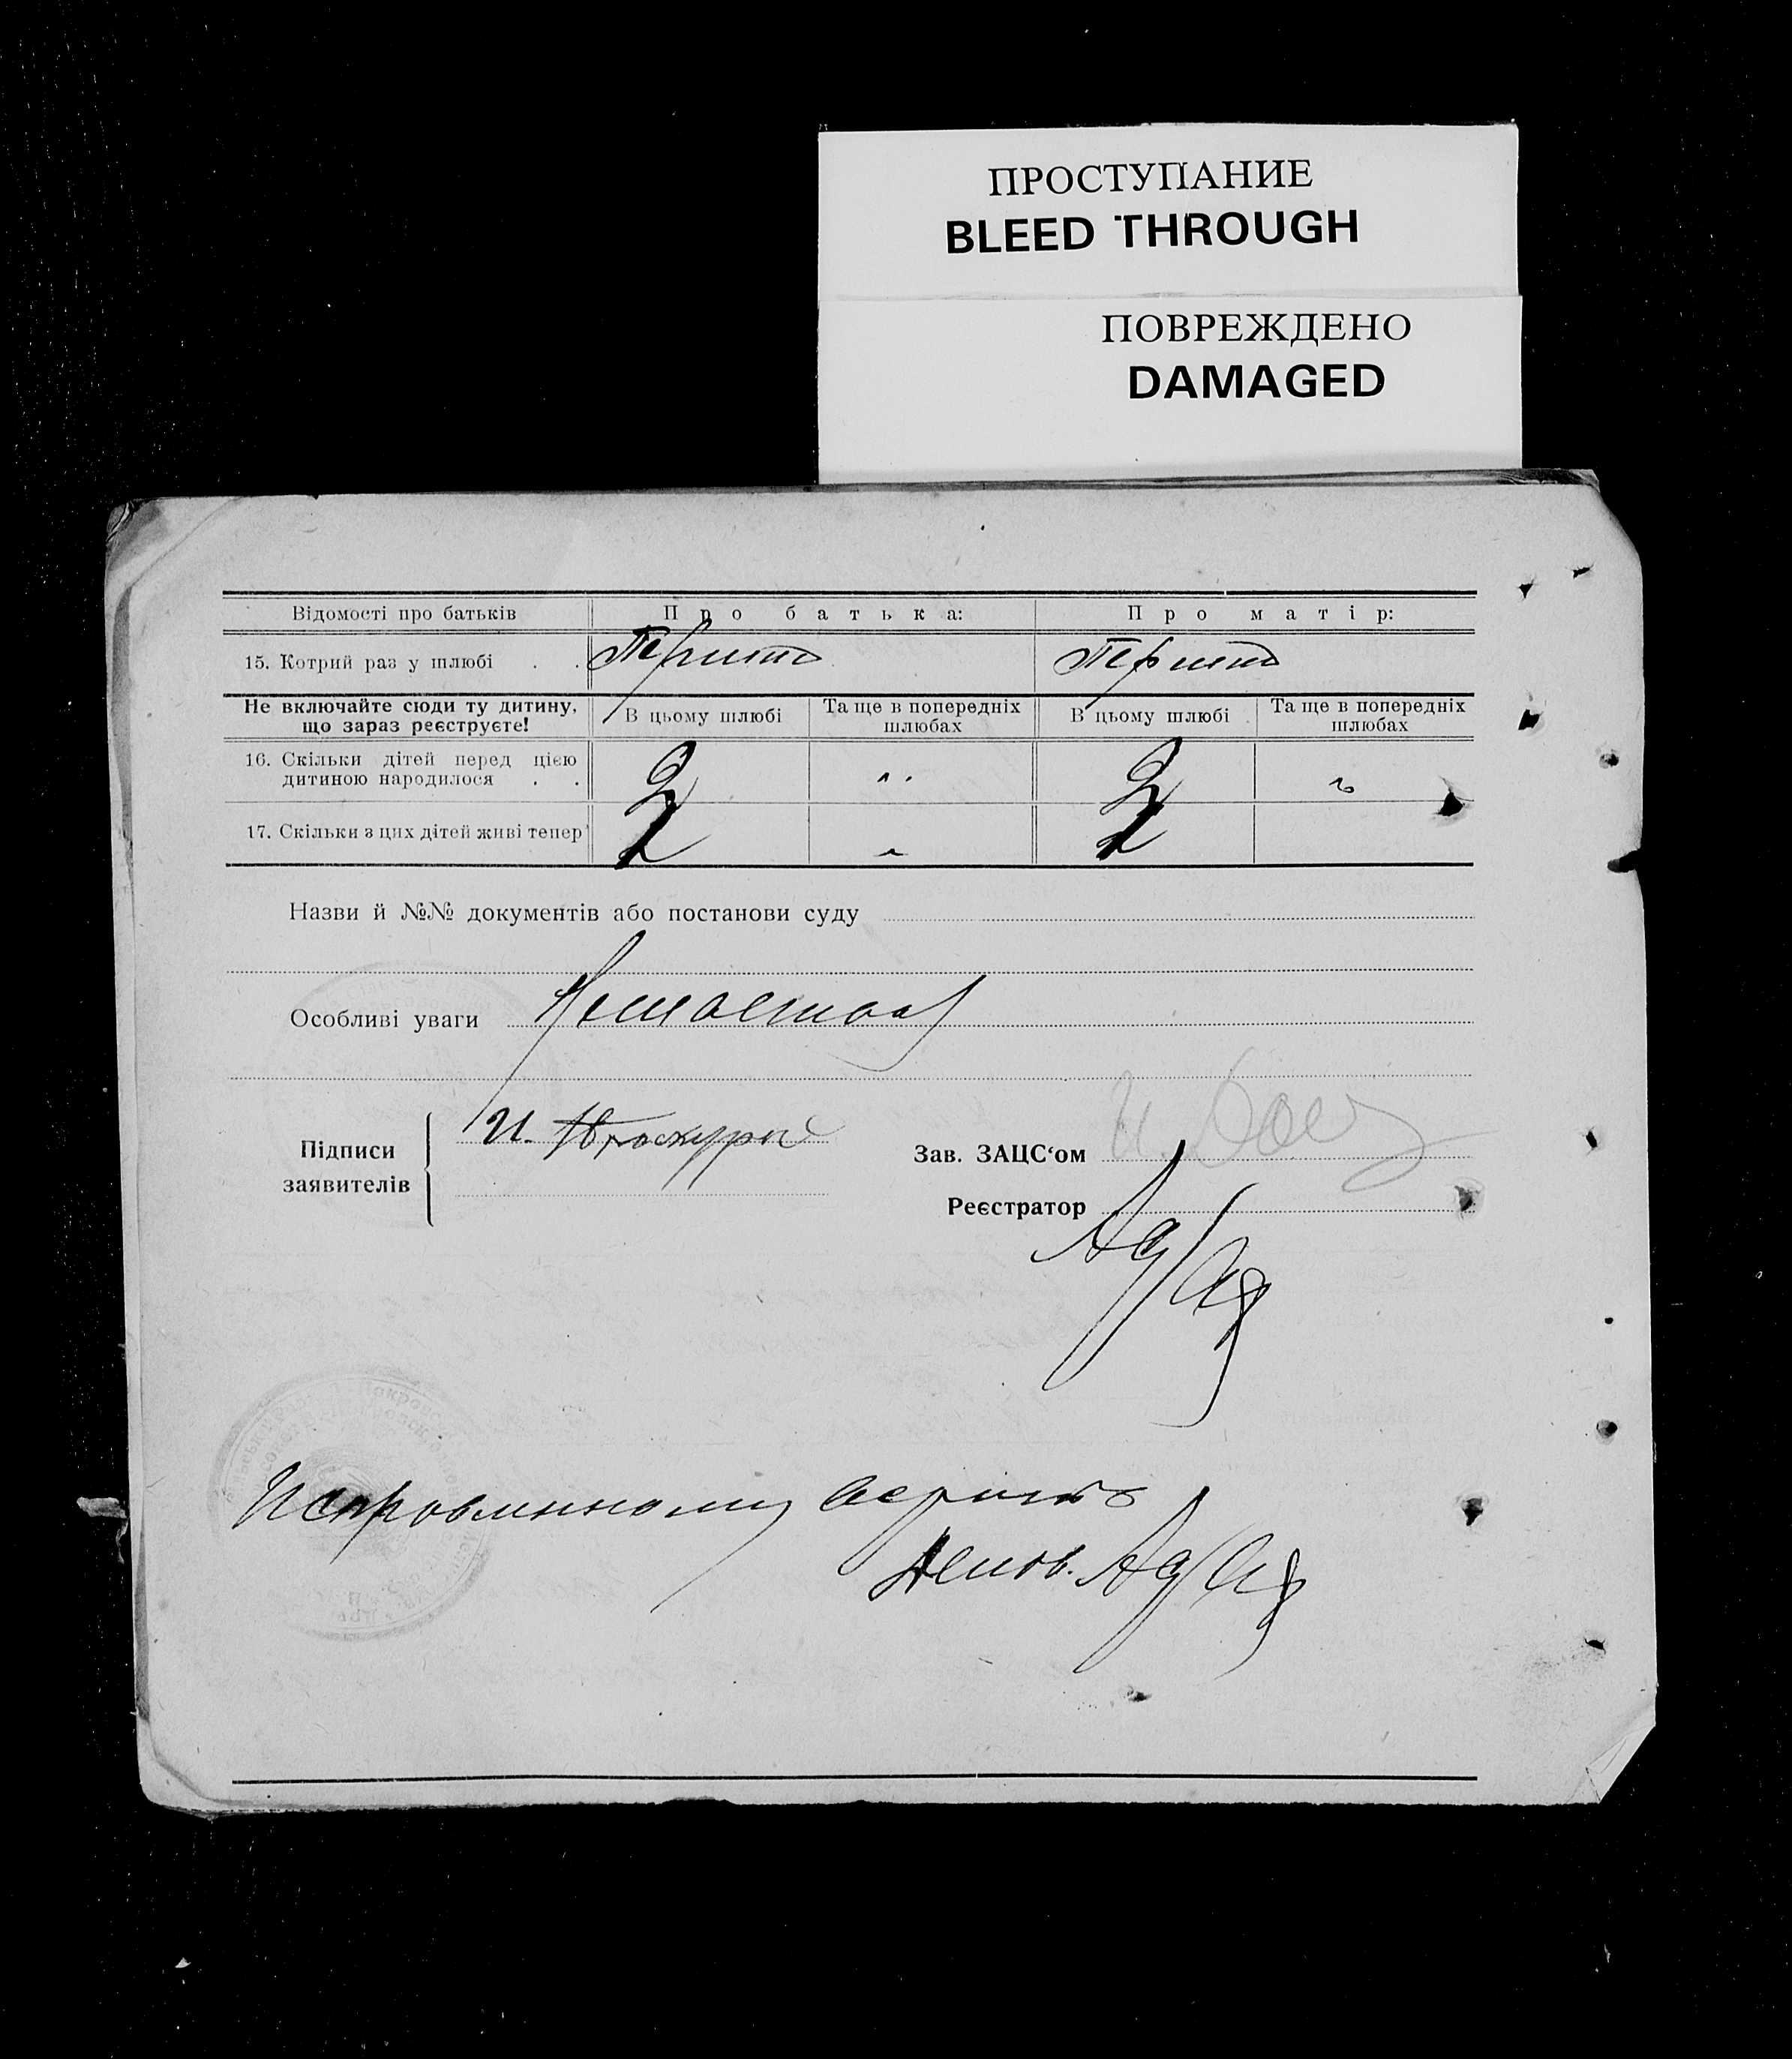 ПРОСТУПАНИЕ
BLEED THROUGH
ПОВРЕЖДЕНО
DAMAGED
Відомості про батьків Про батька: Про матір:
15. Котрий раз у шлюбі . . Перший Перший
Не включайте сюди ту дитину, що зараз реєструєте! В цьому шлюбі Та ще в попередніх шлюбах В цьому шлюбі Та ще в попередніх шлюбах
16. Скільки дітей перед цією
дитиною народилося . . 2 2
17. Скільки з цих дітей живі тепер 2 2
Назви й №№ документів або постанови суду
Особливі уваги
Підписи
заявителів
И. Проскура
Зав. ЗАЦС‘ом
Реєстратор
Исправленному верить